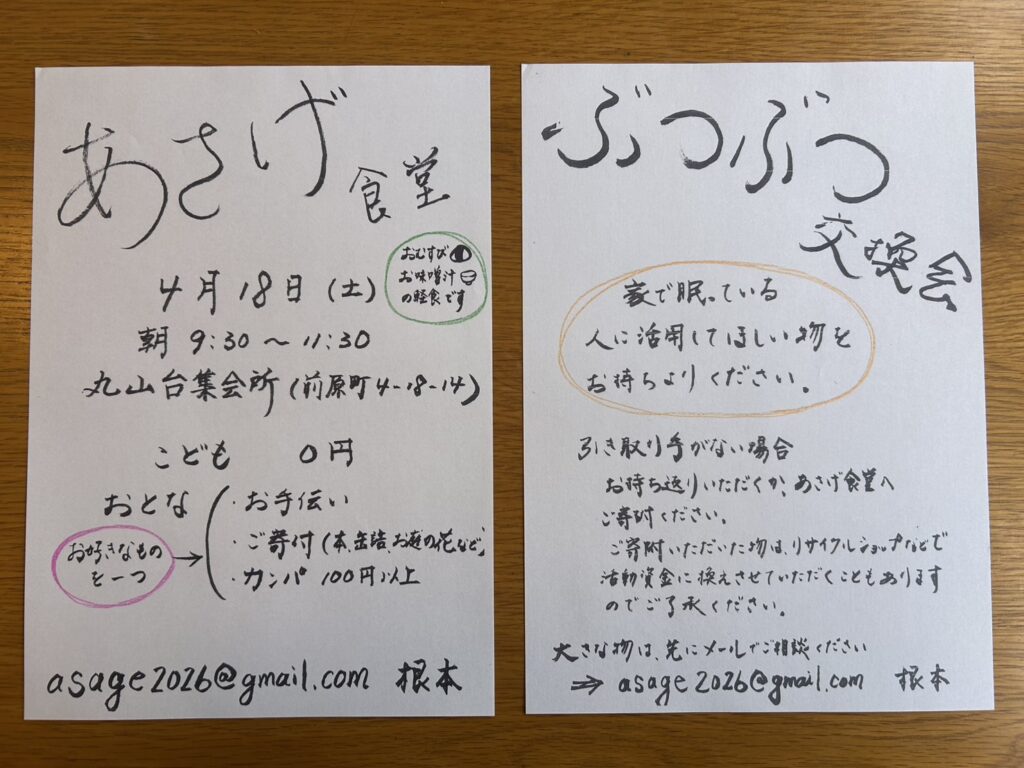 あさげ
食堂
おむすび
お味噌汁
の軽食です
4月18日(土)
朝 9:30〜11:30
丸山台集会所(前原町4-18-14)
こども 0円
おとな
お好きなもの
を一つ
・お手伝い
・ご寄付(本、缶詰、お庭の花、など)
・カンパ 100円以上
asage2026@gmail.com 根本
ぶつぶつ
交換会
家で眠っている
人に活用してほしい物を
お持ちよりください。
引き取り手がない場合
お持ち返りいただくか、あさげ食堂へ
ご寄附ください。
ご寄附いただいた物は、リサイクルショップなどで
活動資金に換えさせていただくこともあります
のでご了承ください。
大きな物は、先にメールでご相談ください
⇒ asage2026@gmail.com 根本